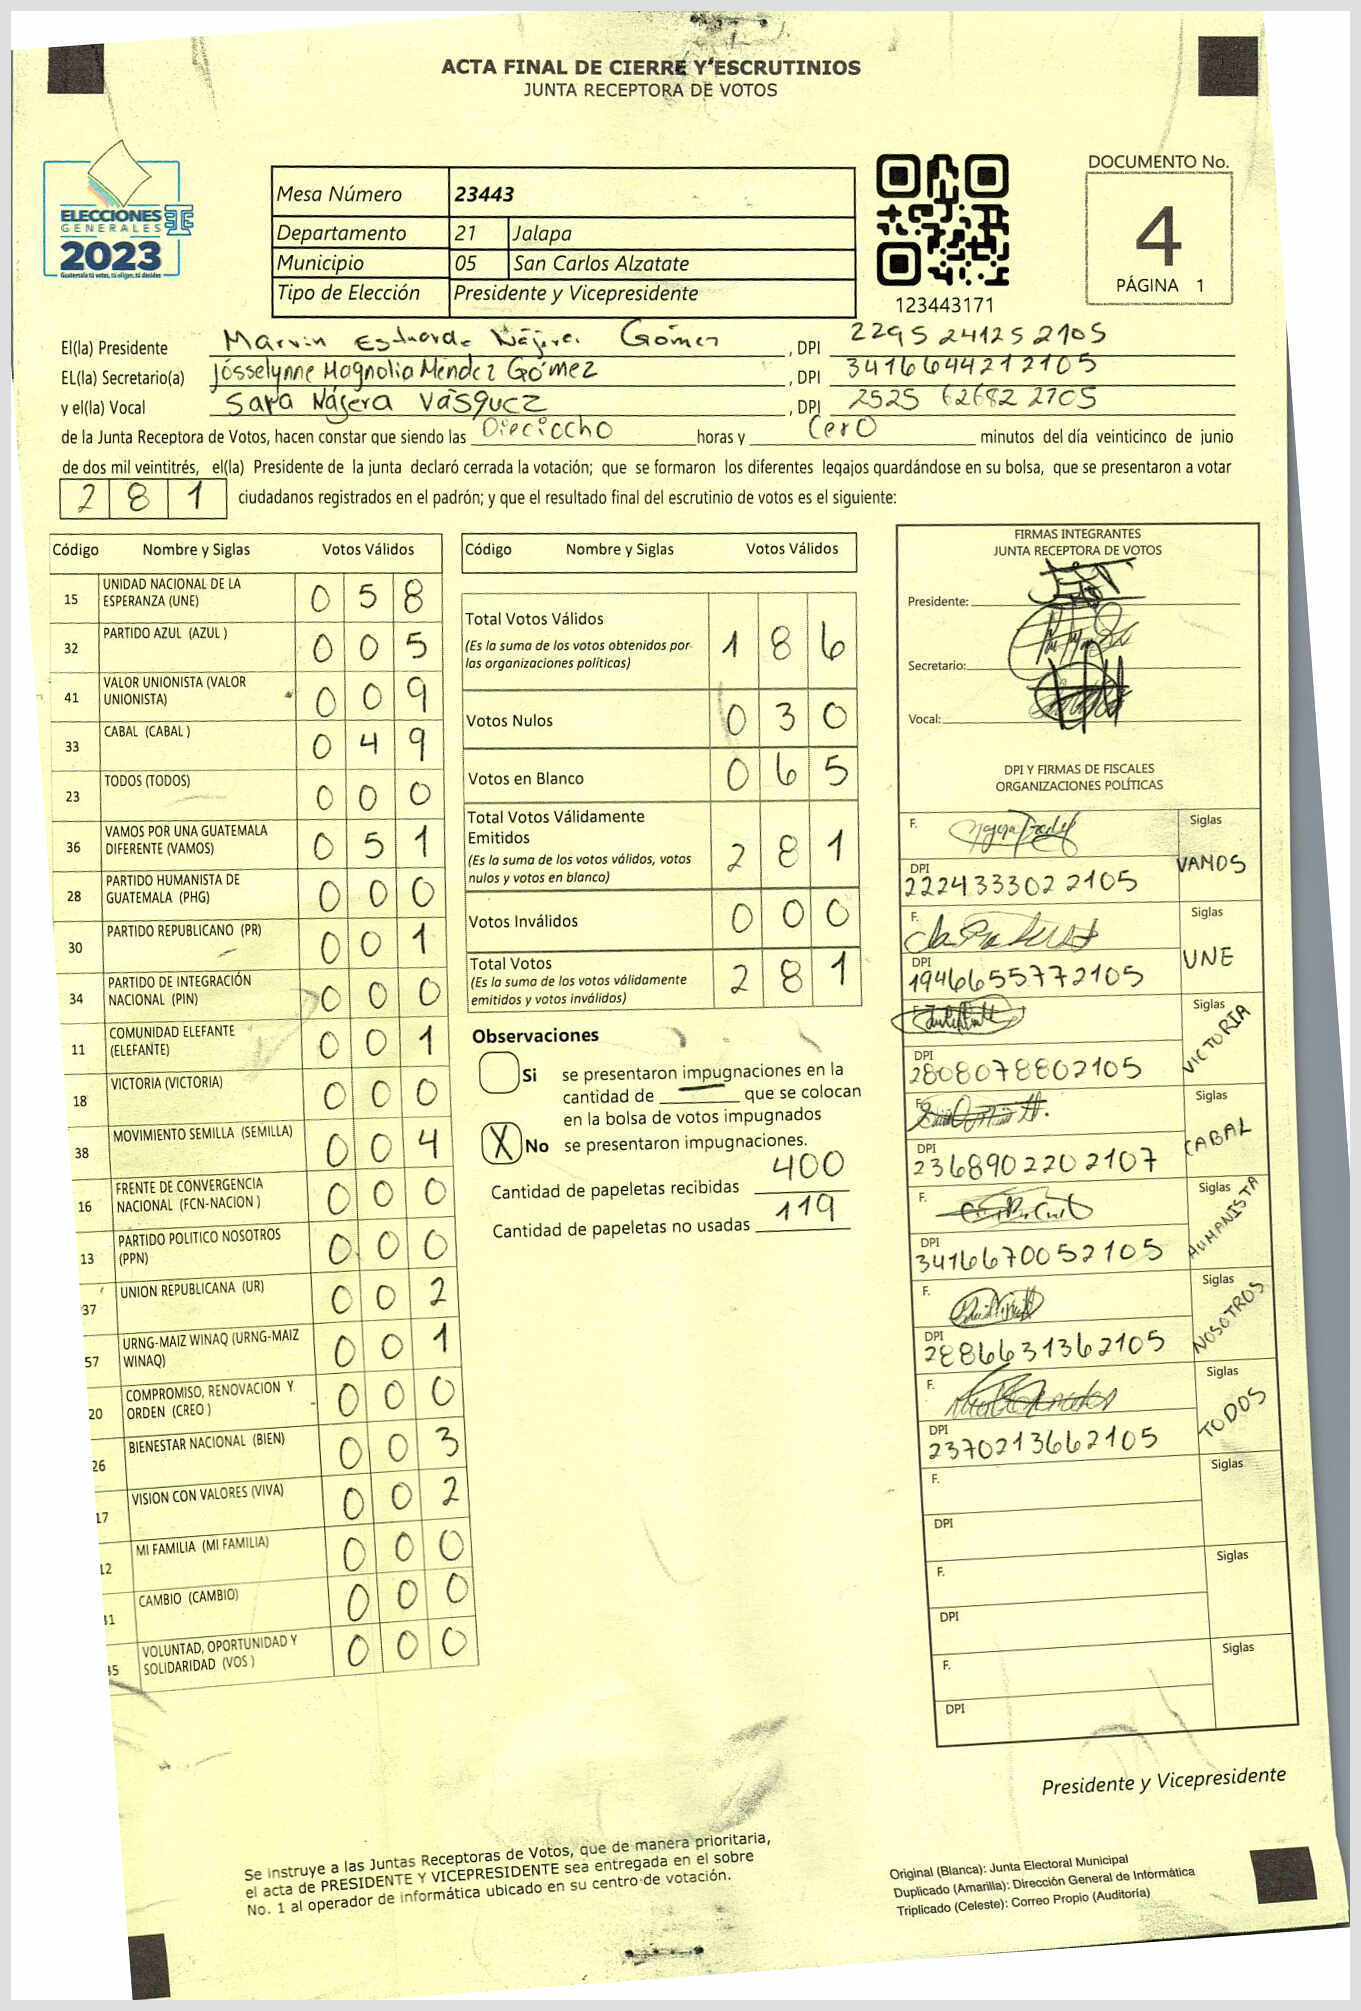 ACTA FINAL DE CIERRE Y ESCRUTINIOS
JUNTA RECEPTORA DE VOTOS
ELECCIONES
GENERALES
2023
Guatemala tú votas, tú eliges, tú decides
Mesa Número 23443
Departamento 21 Jalapa
Municipio 05 San Carlos Alzatate
Tipo de Elección Presidente y Vicepresidente
123443171
DOCUMENTO No.
4
PÁGINA 1
El(la) Presidente Marvin Estuardo Nájera Gómez , DPI 2295 24125 2105
EL(la) Secretario(a) Josselynne Magnolia Mendez Gómez , DPI 3416644212105
y el(la) Vocal Sara Nájera Vásquez , DPI 2525 62682 2105
de la Junta Receptora de Votos, hacen constar que siendo las Dieciocho horas y Cero minutos del día veinticinco de junio
de dos mil veintitrés, el(la) Presidente de la junta declaró cerrada la votación; que se formaron los diferentes legajos quardándose en su bolsa, que se presentaron a votar
281 ciudadanos registrados en el padrón; y que el resultado final del escrutinio de votos es el siguiente:
Código Nombre y Siglas Votos Válidos
15 UNIDAD NACIONAL DE LA ESPERANZA (UNE) 058
32 PARTIDO AZUL (AZUL ) 005
41 VALOR UNIONISTA (VALOR UNIONISTA) 009
33 CABAL (CABAL ) 049
23 TODOS (TODOS) 000
36 VAMOS POR UNA GUATEMALA DIFERENTE (VAMOS) 051
28 PARTIDO HUMANISTA DE GUATEMALA (PHG) 000
30 PARTIDO REPUBLICANO (PR) 001
34 PARTIDO DE INTEGRACIÓN NACIONAL (PIN) 000
11 COMUNIDAD ELEFANTE (ELEFANTE) 001
18 VICTORIA (VICTORIA) 000
38 MOVIMIENTO SEMILLA (SEMILLA) 004
16 FRENTE DE CONVERGENCIA NACIONAL (FCN-NACION ) 000
13 PARTIDO POLITICO NOSOTROS (PPN) 000
37 UNION REPUBLICANA (UR) 002
57 URNG-MAIZ WINAQ (URNG-MAIZ WINAQ) 001
20 COMPROMISO, RENOVACION Y ORDEN (CREO ) 000
26 BIENESTAR NACIONAL (BIEN) 003
17 VISION CON VALORES (VIVA) 002
12 MI FAMILIA (MI FAMILIA) 000
31 CAMBIO (CAMBIO) 000
35 VOLUNTAD, OPORTUNIDAD Y SOLIDARIDAD (VOS ) 000
Código Nombre y Siglas Votos Válidos
Total Votos Válidos 186
(Es la suma de los votos obtenidos por
las organizaciones políticas)
Votos Nulos 030
Votos en Blanco 065
Total Votos Válidamente
Emitidos 281
(Es la suma de los votos válidos, votos
nulos y votos en blanco)
Votos Inválidos 000
Total Votos 281
(Es la suma de los votos válidamente
emitidos y votos inválidos)
Observaciones
Si se presentaron impugnaciones en la
cantidad de — que se colocan
en la bolsa de votos impugnados
X No se presentaron impugnaciones.
Cantidad de papeletas recibidas 400
Cantidad de papeletas no usadas 119
FIRMAS INTEGRANTES
JUNTA RECEPTORA DE VOTOS
Presidente:
Secretario:
Vocal:
DPI Y FIRMAS DE FISCALES
ORGANIZACIONES POLÍTICAS
F. Siglas
DPI 2224333022105 VAMOS
F. Siglas
DPI 1946655772105 UNE
F. Siglas
DPI 2808078802105 VICTORIA
F. Siglas
DPI 2368902202107 CABAL
F. Siglas
DPI 3416670052105 HUMANISTA
F. Siglas
DPI 2886631362105 NOSOTROS
F. Siglas
DPI 2370213662105 TODOS
F. Siglas
DPI
F. Siglas
DPI
F. Siglas
DPI
Presidente y Vicepresidente
Se instruye a las Juntas Receptoras de Votos, que de manera prioritaria,
el acta de PRESIDENTE Y VICEPRESIDENTE sea entregada en el sobre
No. 1 al operador de informática ubicado en su centro de votación.
Original (Blanca): Junta Electoral Municipal
Duplicado (Amarilla): Dirección General de Informática
Triplicado (Celeste): Correo Propio (Auditoría)